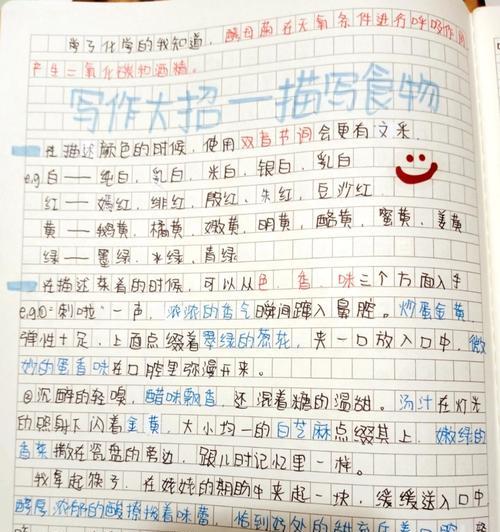 学了化学的我知道，酵母菌在无氧条件进行呼吸作用
产生二氧化碳和酒精。
写作大招一描写食物
一在描述颜色的时候，使用双音节词会更有文采
e.g白——纯白、乳白、米白、银白、乳白
红——嫣红、绯红、殷红、朱红、豆沙红
黄——鹅黄、橘黄、嫩黄、明黄、酪黄、蜜黄、姜黄
绿——墨绿、水绿、青绿
一在描述菜肴的时候，可以从色、香、味三个方面入手
e.g①"刺啦"一声，浓浓的香气瞬间蹿入鼻腔。炒蛋金黄
弹性十足，上面点缀着翠绿的葱花，夹一口放入口中，微
妙的蛋香味在口腔里弥漫开来。
②沉醉的轻嗅，醋味飘香，还混着糖的温甜。汤汁在灯光
的照射下闪着金黄，大小均一的白芝麻点缀其上，嫩绿的
香菜撒在瓷盘的旁边，跟儿时记忆里一样。
我拿起筷子，在姥姥的期盼中夹起一块，缓缓送入口中
醇厚浓郁的酸撩拨着味蕾，恰到好处的甜